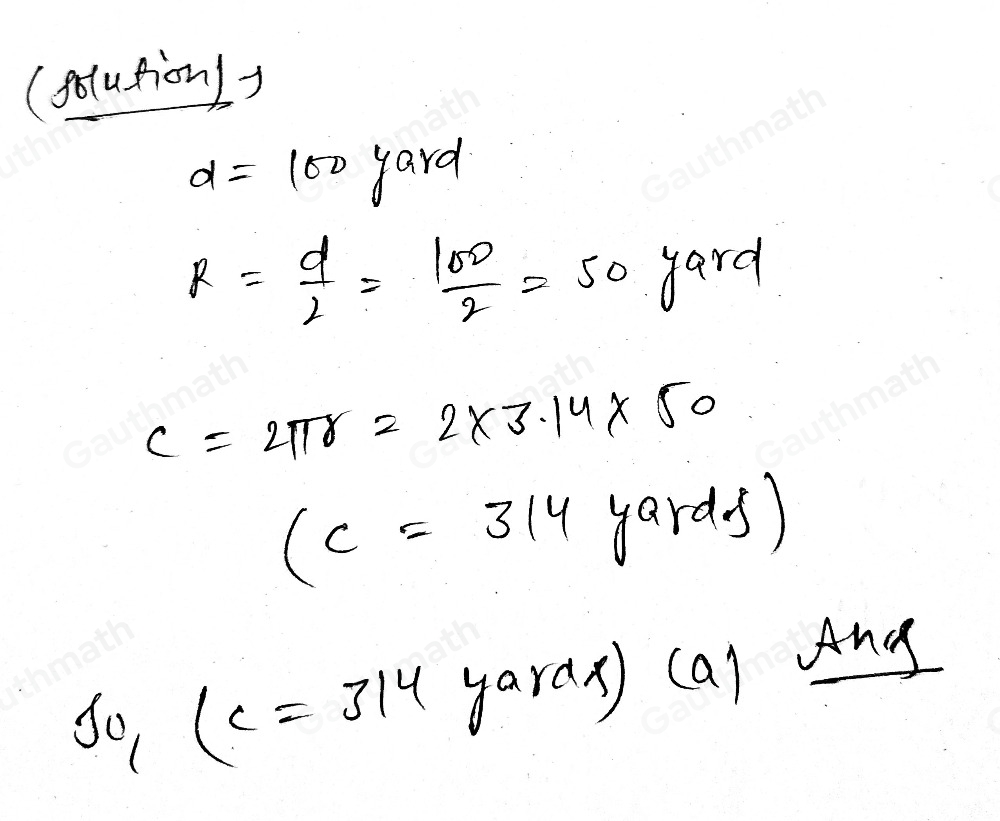 (Solution) →
d = 100 yard
R = d/2 = 100/2 = 50 yard
C = 2πr = 2×3.14×50
(C = 314 yards)
So, (C = 314 yards) (a) Ans
Gauthmath